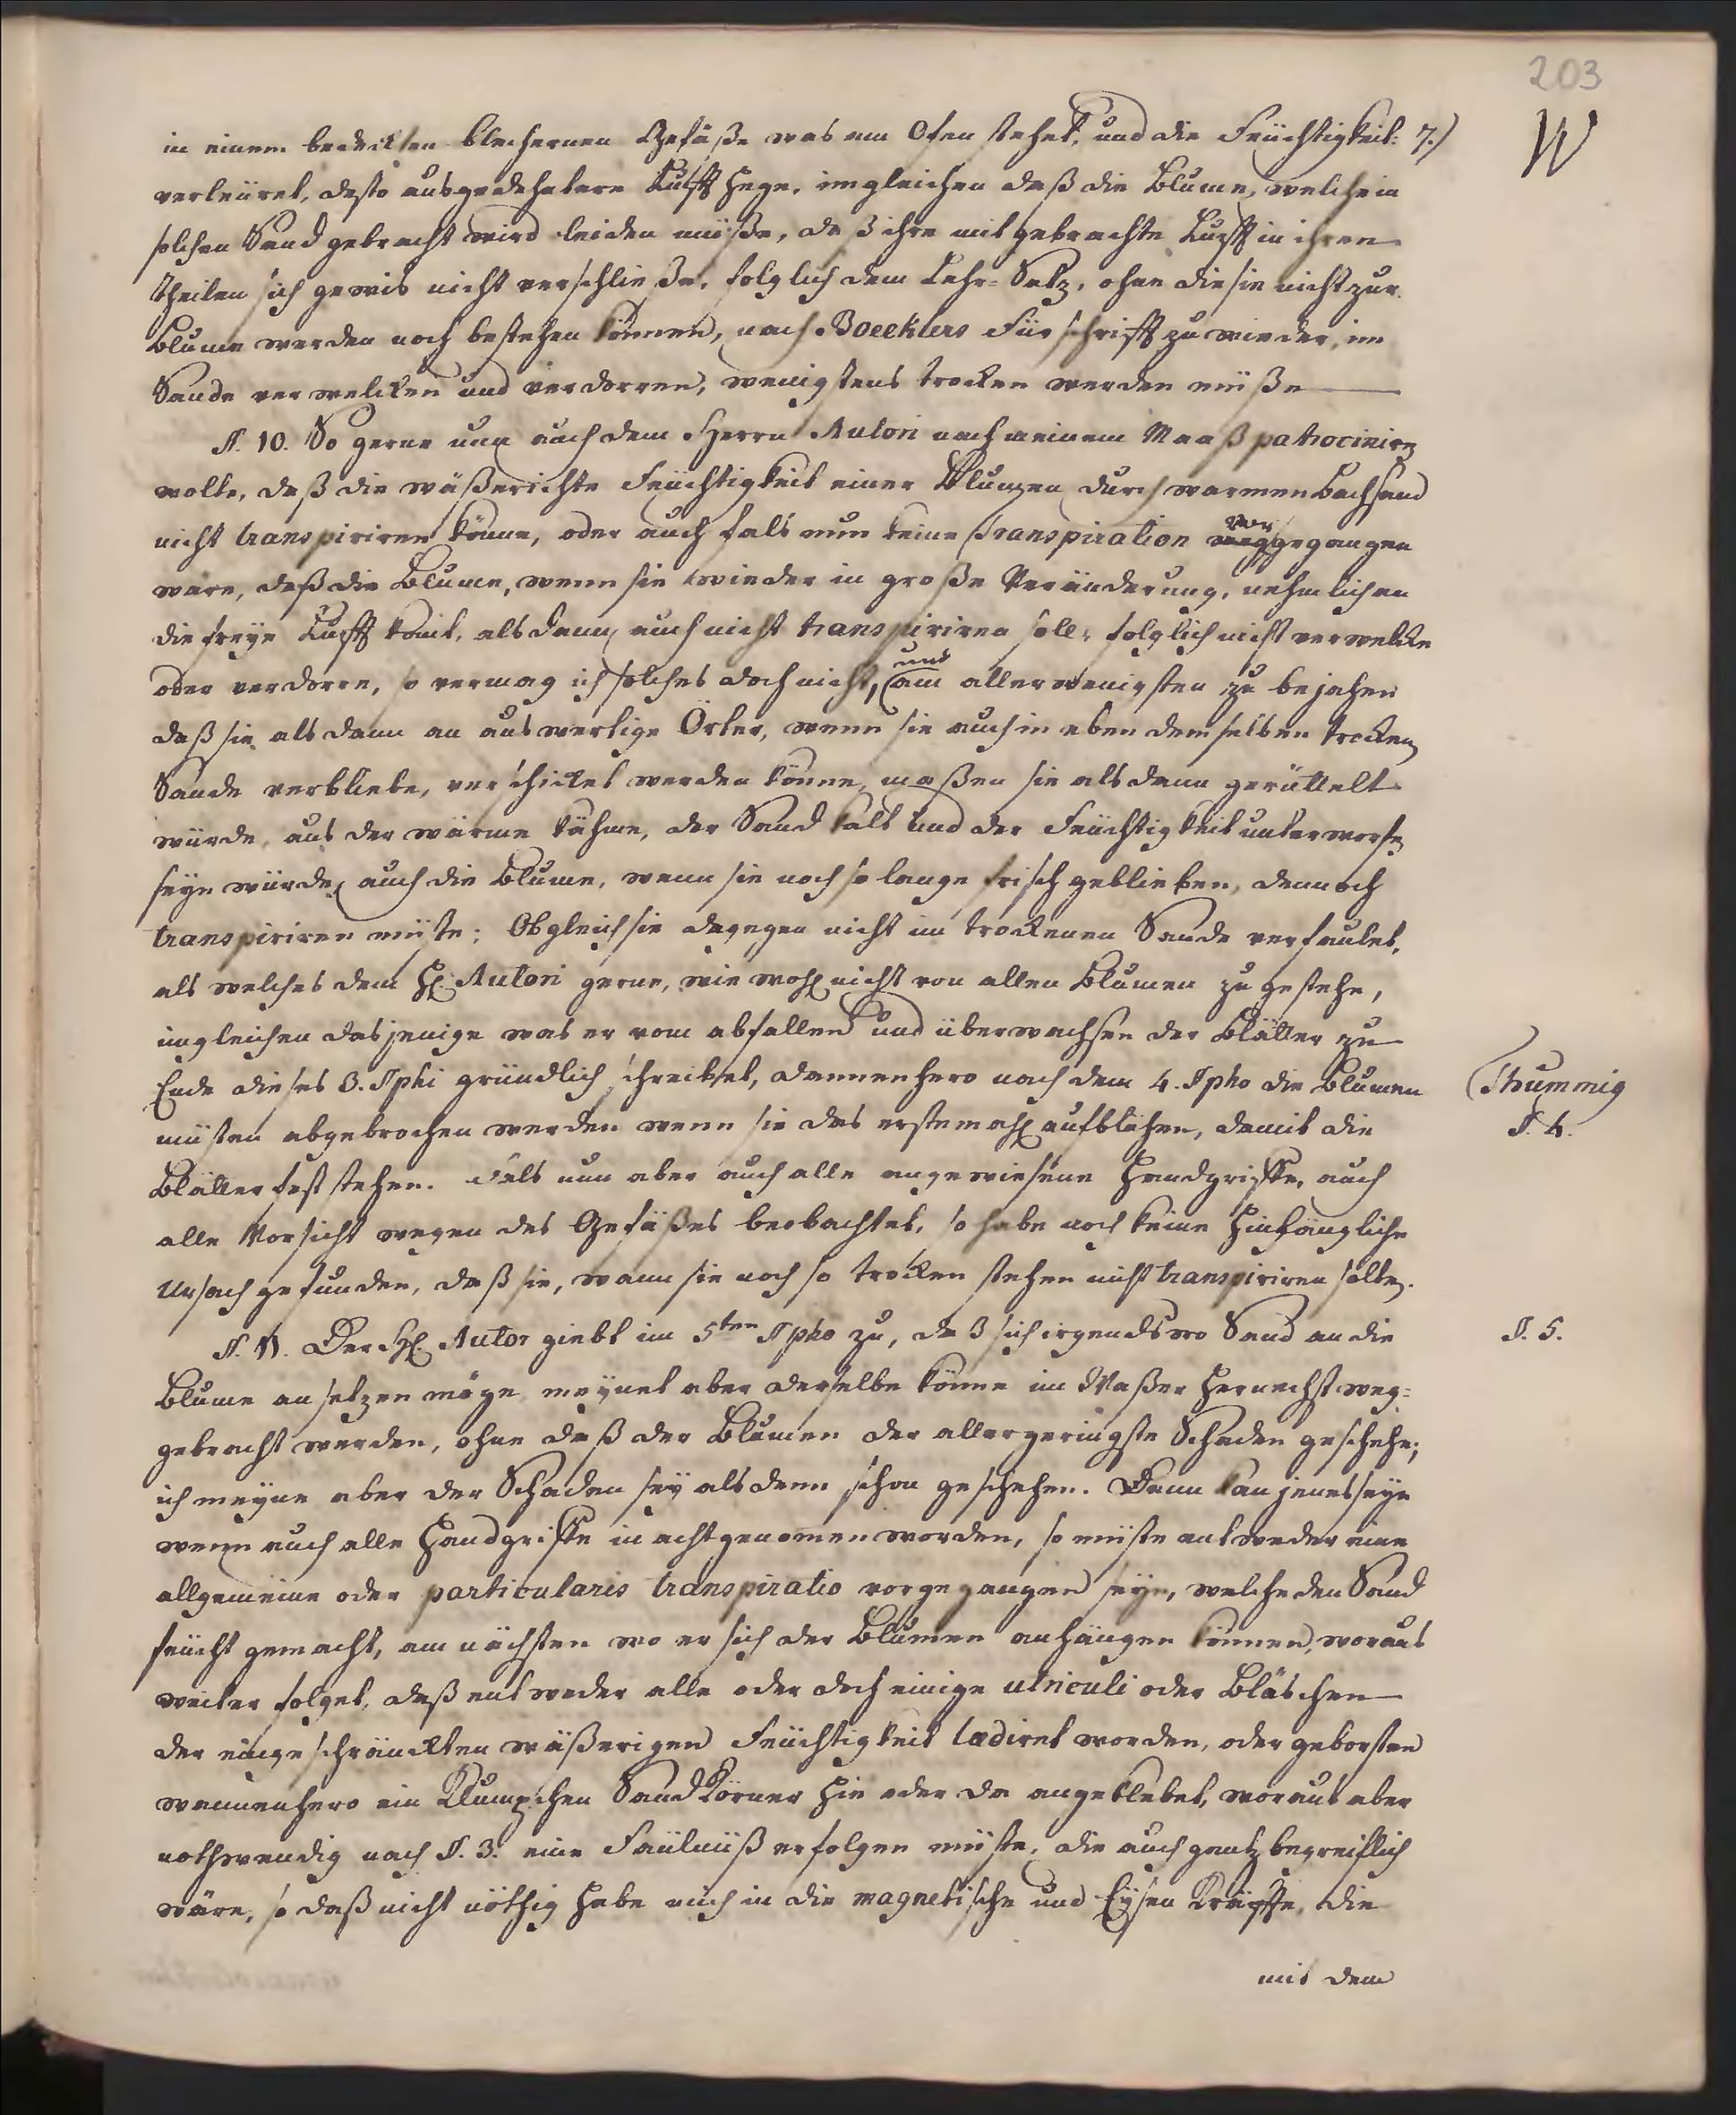 203
W
in einem bedeckten blechernen Gefäße was am Ofen stehet, und die Feüchtigkeit 7.)
verleüret, desto ausgedehntere Lufft hege, imgleichen daß die Blume, welche in
solchen Sand gebracht wird leiden müße, daß ihre mit gebrachte Lufft in ihren
Theilen sich gewis nicht verschließe, folglich dem Lehr-Satz, ohne die sie nicht zur
Blume werden noch bestehen können, nach Boecklers Fürschrifft zuwieder, im
Sande verwelcken und verdorren, wenigstens trocken werden müße
§. 10. So gerne nun auch dem Herrn Autori nach meinem Maaß patrociniren
wolte, daß die wäßerichte Feüchtigkeit einer Blumen durch warmen Bachsand
nicht transpiriren könne, oder auch fals nun keine transpiration vorgegangen
wäre, daß die Blume, wenn sie wieder in große Veränderung, nehmlich an
die freye Lufft komt, als dann auch nicht transpiriren soll, folglich nicht verwelcke
oder verdorre, so vermag ich solches doch nicht, und am allerwenigsten zu bejahen
daß sie als dann an auswertige Örter, wenn sie auch in eben demselben trocken
Sande verbliebe, verschicket werden könne, maßen sie als dann gerüttelt
würde, aus der wärme kähme, der Sand kalt und der Feüchtigkeit unterworfen
seyn würde, auch die Blume, wenn sie noch so lange frisch geblieben, dennoch
transpiriren müste; Obgleich sie dagegen nicht im trockenen Sande verfaulet,
als welches dem H. Autori gerne, wie wohl nicht von allen Blumen zu gestehe,
imgleichen dasjenige was er vom abfallen und überwachsen der Blätter zu
Ende dieses 3. §phi gründlich schreibet, dannenhero nach dem 4. §pho die Blumen
müsten abgebrochen werden wenn sie das erstemahl aufblühen, damit die
Blätter fest stehen. Fals nun aber auch alle angewiesene Handgriffe, auch
alle Vorsicht wegen des Gefäßes beobachtet, so habe noch keine hinlängliche
Ursach gefunden, daß sie, wann sie noch so trocken stehen nicht transpiriren solten.
Thummig
§. 4.
§. 11. Der H. Autor giebt im 5ten §pho zu, daß sich irgendswo Sand an die
Blume ansetzen möge, meynet aber derselbe könne im Waßer hernechst weg-
gebracht werden, ohne daß der Blumen der allergeringste Schaden geschehe;
ich meyne aber der Schaden sey als denn schon geschehen. Denn kan jenes seyn
wenn auch alle Handgriffe in acht genomen worden, so müste entweder eine
allgemeine oder particularis transpiratio vorgegangen seyn, welche den Sand
feücht gemacht, am nächsten wo er sich der Blumen anhängen können, woraus
weiter folget, daß entweder alle oder doch einige utriculi oder Bläschen
der eingeschränckten wäßerigen Feüchtigkeit lædiret worden, oder geborsten
wannenhero ein Klumpchen Sand Körner hie oder da angeklebet, woraus aber
nothwendig nach §. 3. eine Faülnüß erfolgen müste, die auch gantz begreiflich
wäre, so daß nicht nöthig habe mich in die magnetische und Eysen Kräffte, die
§. 5.
mit dem